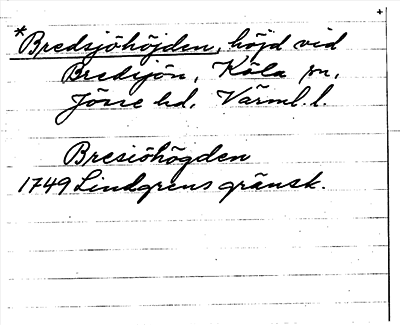 *Bredsjöhöjden, höjd vid
Bredsjön, Köla sn,
Jösse hd, Värml. l.
Bresiöhögden
1749 Lindgrens gränsk.